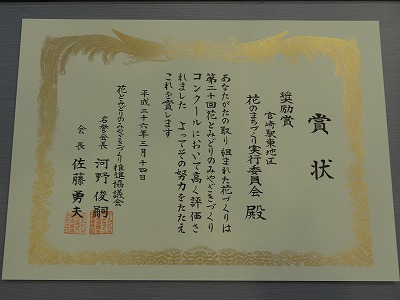 賞状
奨励賞
宮崎駅東地区
花のまちづくり実行委員会 殿
あなたがたの取り組まれた花づくりは
第二十回花とみどりのみやざきづくり
コンクールにおいて高く評価さ
れました よってその努力をたたえ
これを賞します
平成二十六年三月十四日
花とみどりのみやざきづくり推進協議会
名誉会長 河野俊嗣
会長 佐藤勇夫